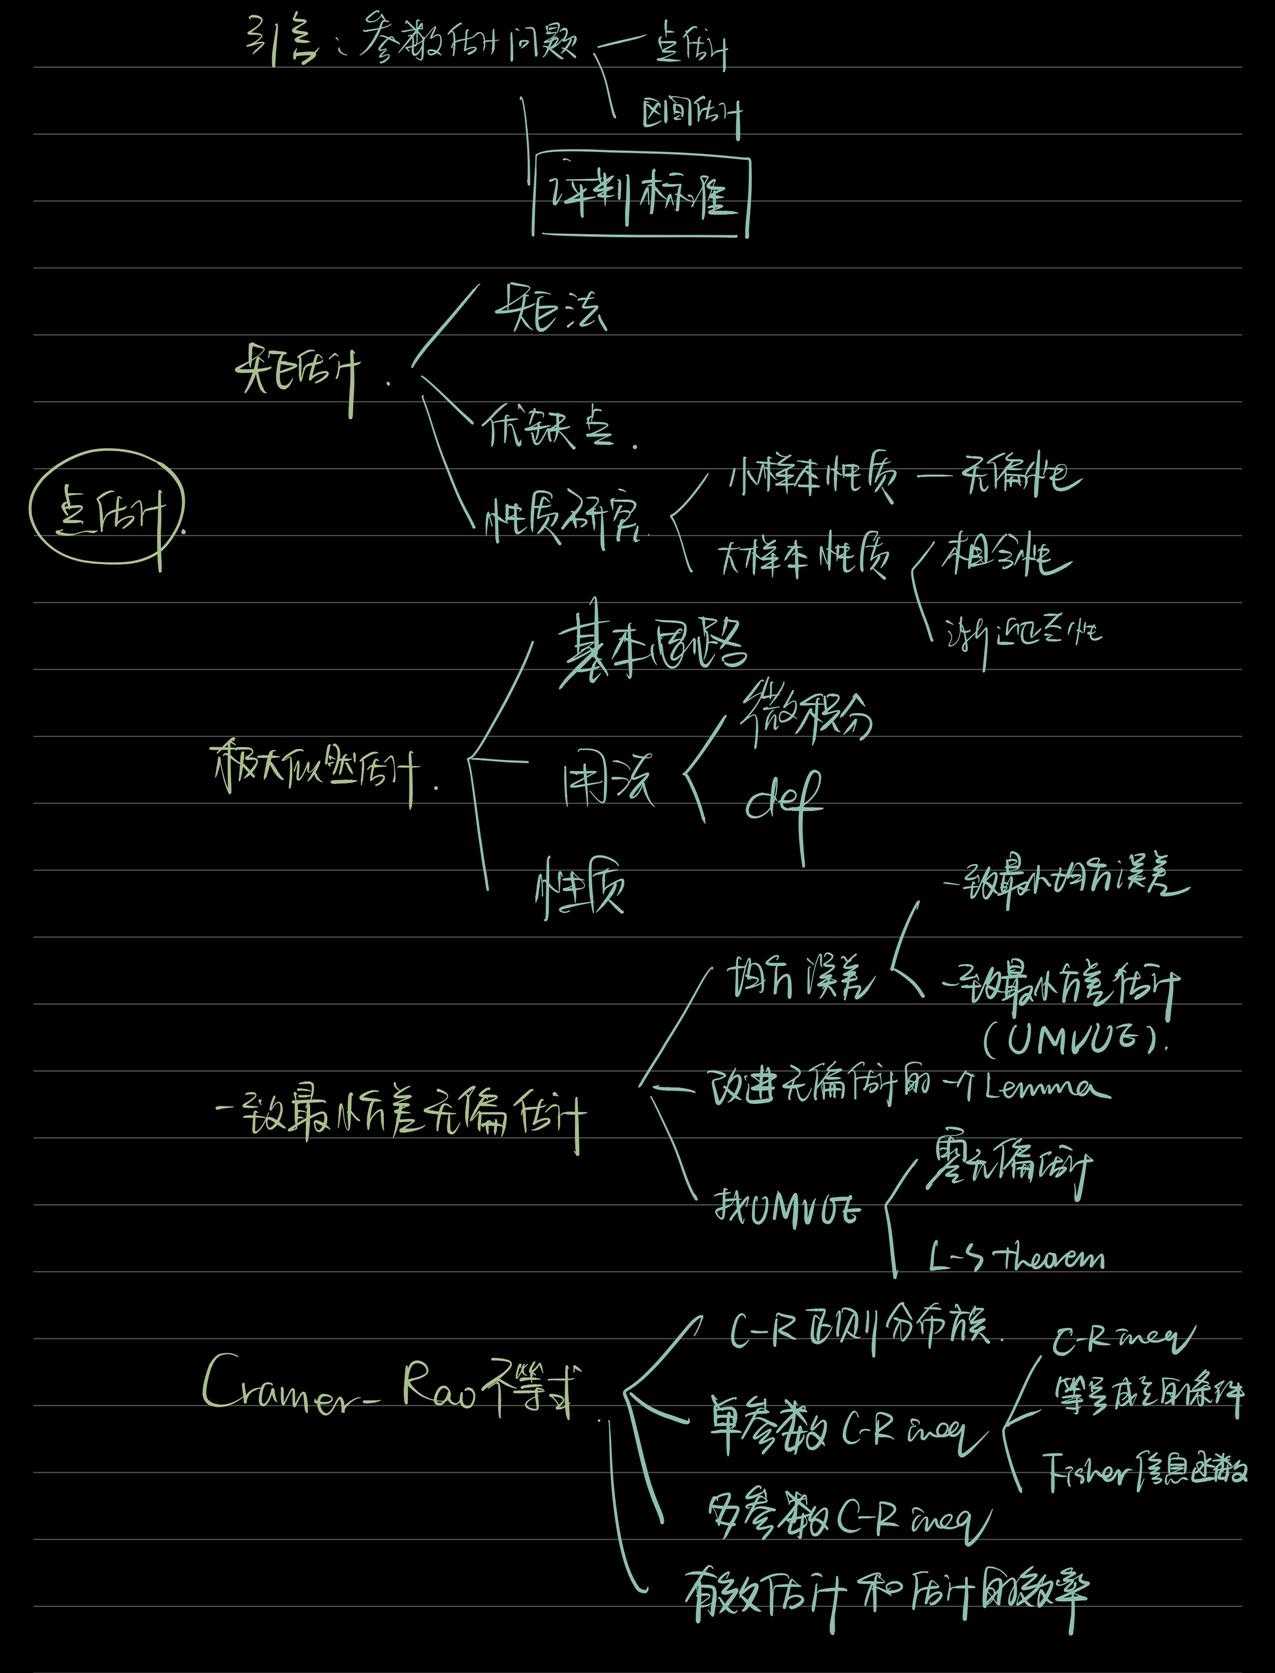 引言：参数估计问题
点估计
区间估计
评判标准
点估计.
矩估计.
矩法
优缺点.
性质研究
小样本性质 — 无偏性
大样本性质
相合性
渐近正态性
极大似然估计.
基本思路
用法
微积分
def
性质
一致最小方差无偏估计
均方误差
一致最小均方误差
一致最小方差估计
(UMVUE).
改进无偏估计的一个Lemma
找UMVUE
零无偏估计
L-S theorem
Cramer-Rao不等式
C-R正则分布族.
单参数C-R ineq
C-R ineq
等号成立的条件
Fisher信息函数
多参数C-R ineq
有效估计和估计的效率